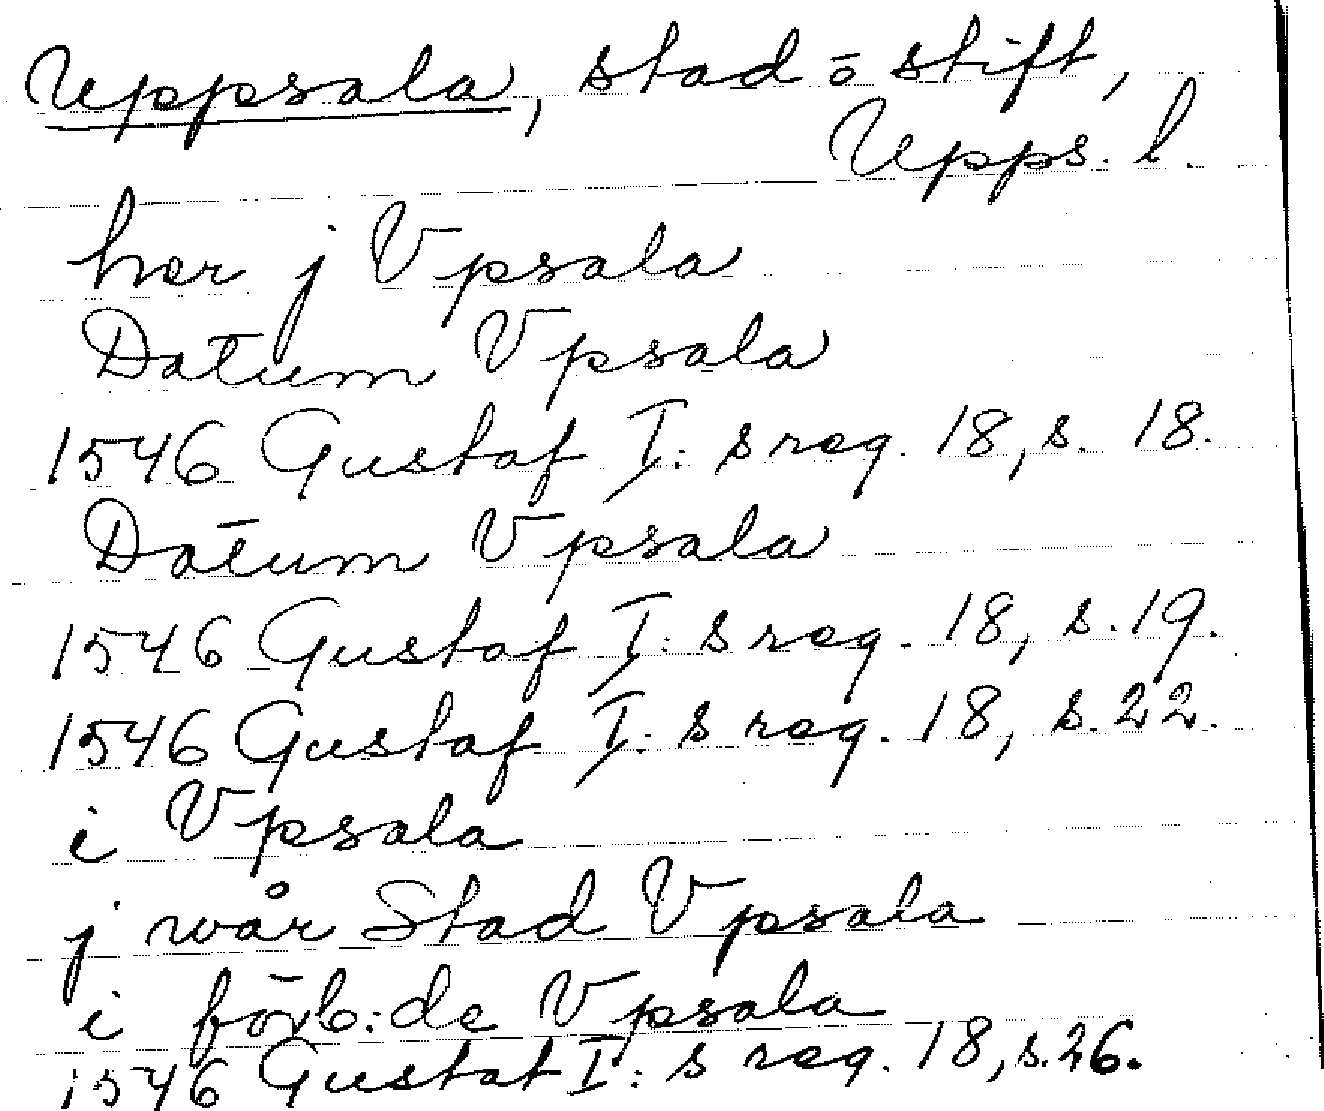 Uppsala, stad o stift,
Upps. l.
her j Vpsala
Datum Vpsala
1546 Gustaf I: s reg. 18, s. 18.
Datum Vpsala
1546 Gustaf I: s reg. 18, s. 19.
1546 Gustaf I: s reg. 18, s. 22.
i Vpsala
j wår Stad Vpsala
i förb:de Vpsala
1546 Gustaf I: s reg. 18, s. 26.